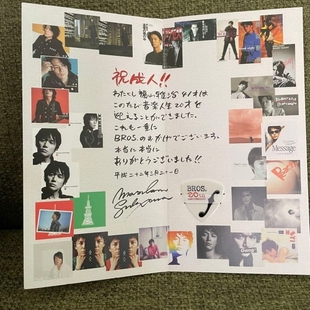 祝成人!!
わたくし福山雅治41才は
このたび音楽人生20才を
迎えることができました。
これも一重に
BROS.のおかげでございます。
本当に本当に
ありがとうございました!!
平成二十二年三月二十一日
BROS.
20th
Message